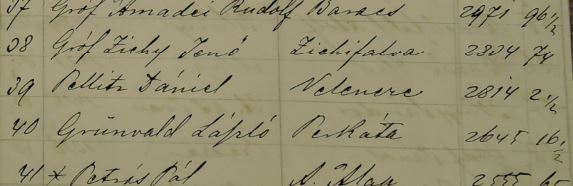 37 Gróf Amadei Rudolf Baracs 2971 96 1/2
38 Gróf Zichy Jenő Zichifalva 2834 74
39 Pellitz Dániel Velencze 2814 2 1/2
40 Grünvald László Perkáta 2645 16 1/2
41 x Petrás Pál A. Alap 2555